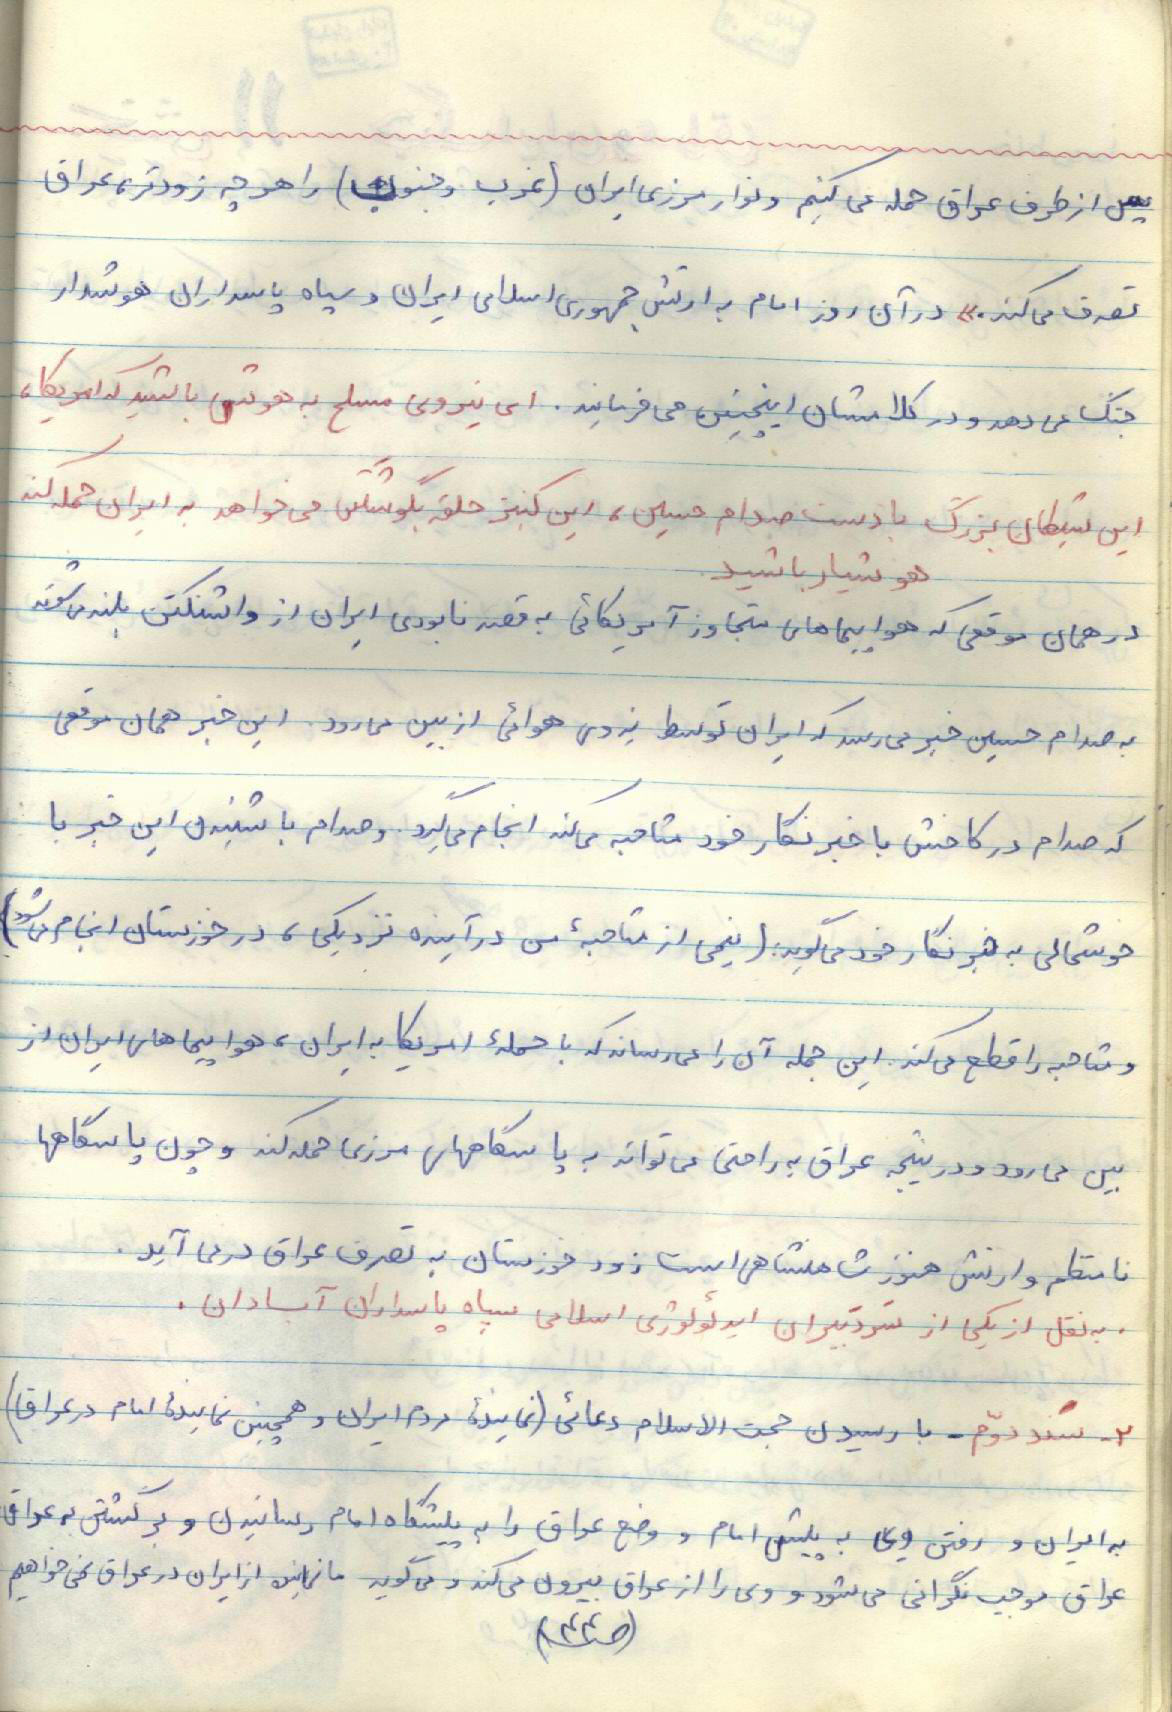 پس از طرف عراق حمله می کنیم و نوار مرزی ایران (غرب و جنوب) را هر چه زودتر، عراق
تصرف می کند.» در آن روز امام به ارتش جمهوری اسلامی ایران و سپاه پاسداران هوشدار
جنگ می دهد و در کلامشان اینچنین می فرمایند. ای نیروی مسلح به هوش باشید که امریکا،
این شیطان بزرگ با دست صدام حسین، این کنیز حلقه بگوشش می خواهد به ایران حمله کند
هوشیار باشید.
در همان موقعی که هواپیماهای متجاوز آمریکائی به قصد نابودی ایران از واشنگتن بلند می شوند
به صدام حسین خبر می رسد که ایران توسط نیروی هوائی از بین می رود. این خبر همان موقعی
که صدام در کاخش با خبرنگار خود مصاحبه می کند انجام می گیرد. و صدام با شنیدن این خبر با
خوشحالی به خبرنگار خود می گوید: (نیمی از مصاحبهٔ من در آینده نزدیکی، در خوزستان انجام می شود)
و مصاحبه را قطع می کند. این جمله آن را می رساند که با حملهٔ امریکا به ایران، هواپیماهای ایران از
بین می رود و در نتیجه عراق به راحتی می تواند به پاسگاههای مرزی حمله کند و چون پاسگاهها
نامنظم و ارتش هنوز شاهنشاهی است زود خوزستان به تصرف عراق در می آید.
. به نقل از یکی از سردبیران ایدئولوژی اسلامی سپاه پاسداران آبادان.
۲- سند دوّم - با رسیدن حجت الاسلام دعائی (نمایندهٔ مردم ایران و همچنین نمایندهٔ امام در عراق)
به ایران و رفتن وی به پیش امام و وضع عراق را به پیشگاه امام رسانیدن و برگشتن به عراق
عراق موجب نگرانی می شود و وی را از عراق بیرون می کند و می گوید ما نماینده از ایران در عراق نمی خواهیم
(ص ۴۴)